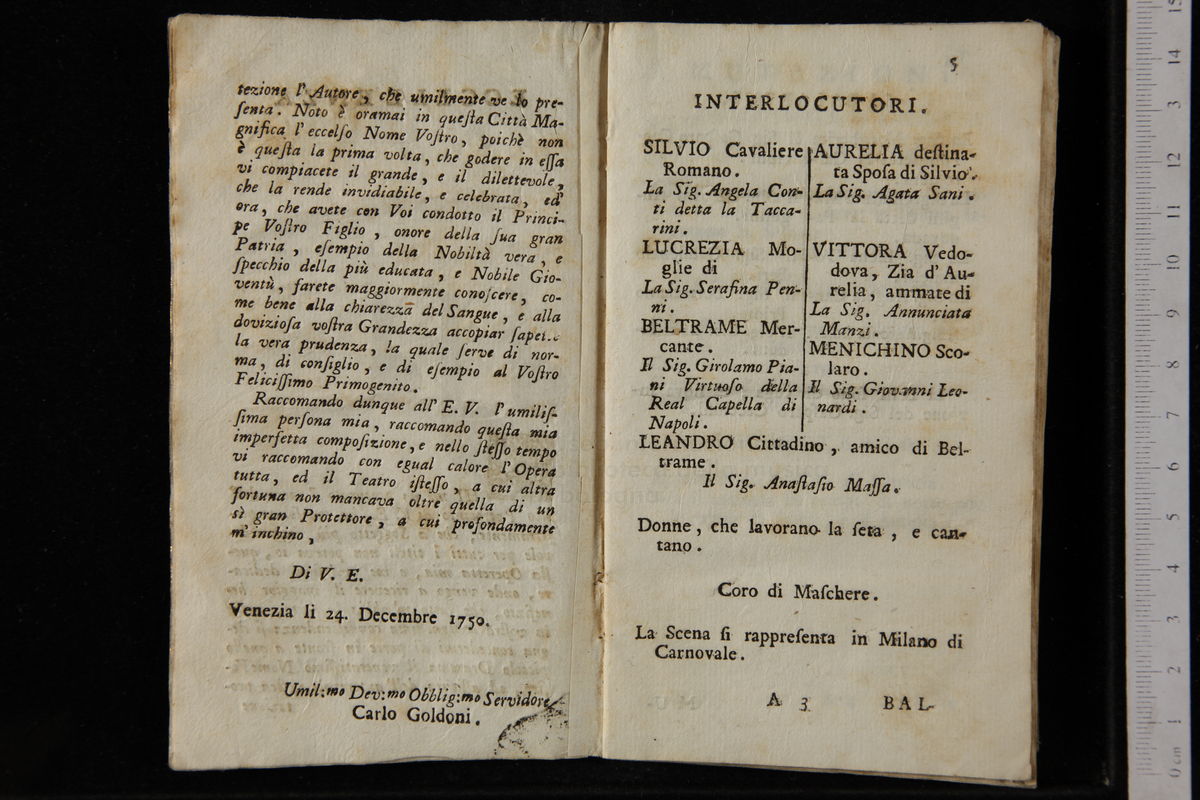 tezione l' Autore, che umilmente ve lo pre-
ſenta. Noto è oramai in queſta Città Ma-
gnifica l' eccelſo Nome Voſtro, poichè non
è queſta la prima volta, che godere in eſſa
vi compiacete il grande, e il dilettevole,
che la rende invidiabile, e celebrata, ed
ora, che avete con Voi condotto il Princi-
pe Voſtro Figlio, onore della ſua gran
Patria, eſempio della Nobiltà vera, e
ſpecchio della più educata, e Nobile Gio-
ventù, farete maggiormente conoſcere, co-
me bene alla chiarezza del Sangue, e alla
dovizioſa voſtra Grandezza accopiar
la vera prudenza, la quale ſerve di nor-
ma, di conſiglio, e di eſempio al Voſtro
Feliciſſimo Primogenito.
Raccomando dunque all' E. V. l' umiliſ-
ſima perſona mia, raccomando queſta mia
imperfetta compoſizione, e nello ſteſſo tempo
vi raccomando con egual calore l' Opera
tutta, ed il Teatro iſteſſo, a cui altra
fortuna non mancava oltre quella di un
sì gran Protettore, a cui profondamente
m' inchino,
Di V. E.
Venezia li 24. Decembre 1750.
Umil:mo Dev:mo Obblig:mo Servidore
Carlo Goldoni.
5
INTERLOCUTORI.
SILVIO Cavaliere
Romano.
La Sig. Angela Con-
ti detta la Tacca-
rini.
LUCREZIA Mo-
glie di
La Sig. Serafina Pen-
ni.
BELTRAME Mer-
cante.
Il Sig. Girolamo Pia-
ni Virtuoſo della
Real Capella di
Napoli.
AURELIA deſtina-
ta Spoſa di Silvio.
La Sig. Agata Sani.
VITTORA Vedo-
dova, Zia d' Au-
relia, ammate di
La Sig. Annunciata
Manzi.
MENICHINO Sco-
laro.
Il Sig. Giovanni Leo-
nardi.
LEANDRO Cittadino, amico di Bel-
trame.
Il Sig. Anaſtaſio Maſſa.
Donne, che lavorano la ſeta, e can-
tano.
Coro di Maſchere.
La Scena ſi rappreſenta in Milano di
Carnovale.
A 3 BAL-